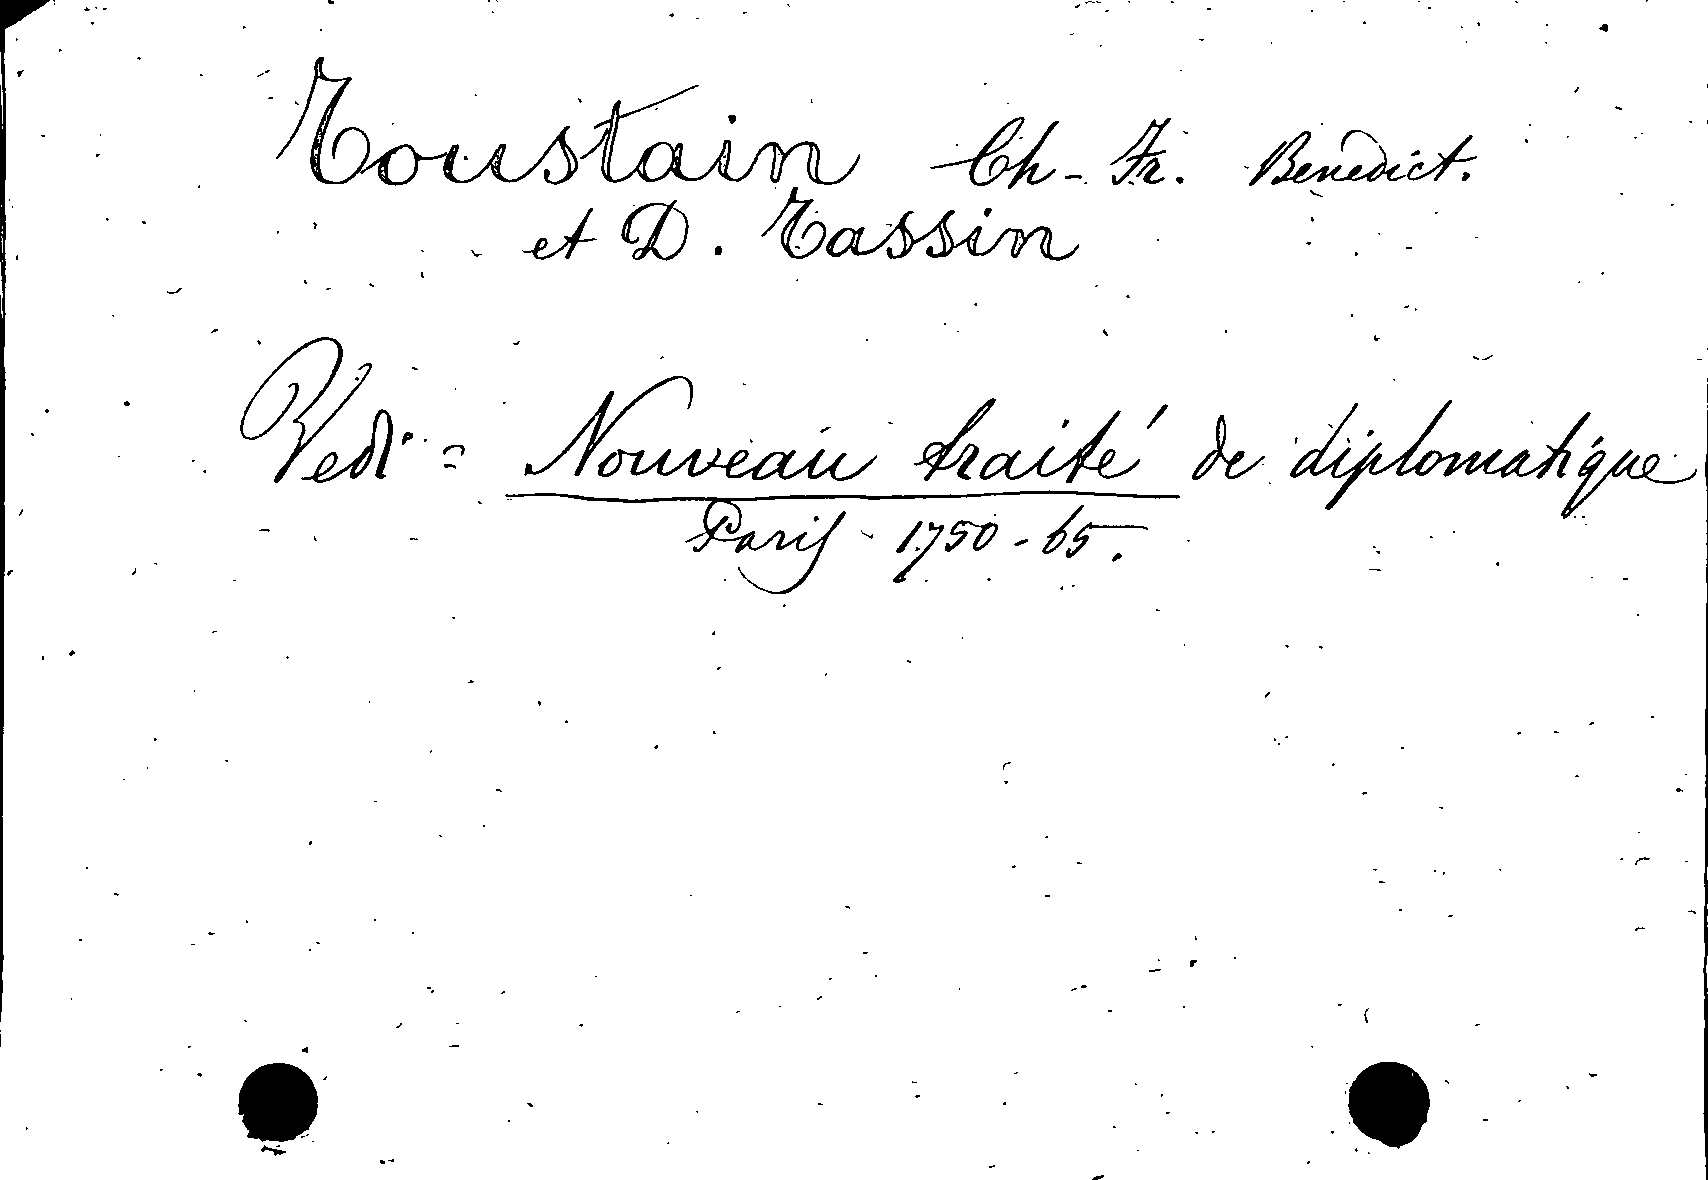 Toustain Ch-Fr. Benedict.
et D. Tassin
Vedi = Nouveau traité de diplomatique
Paris 1750-65.